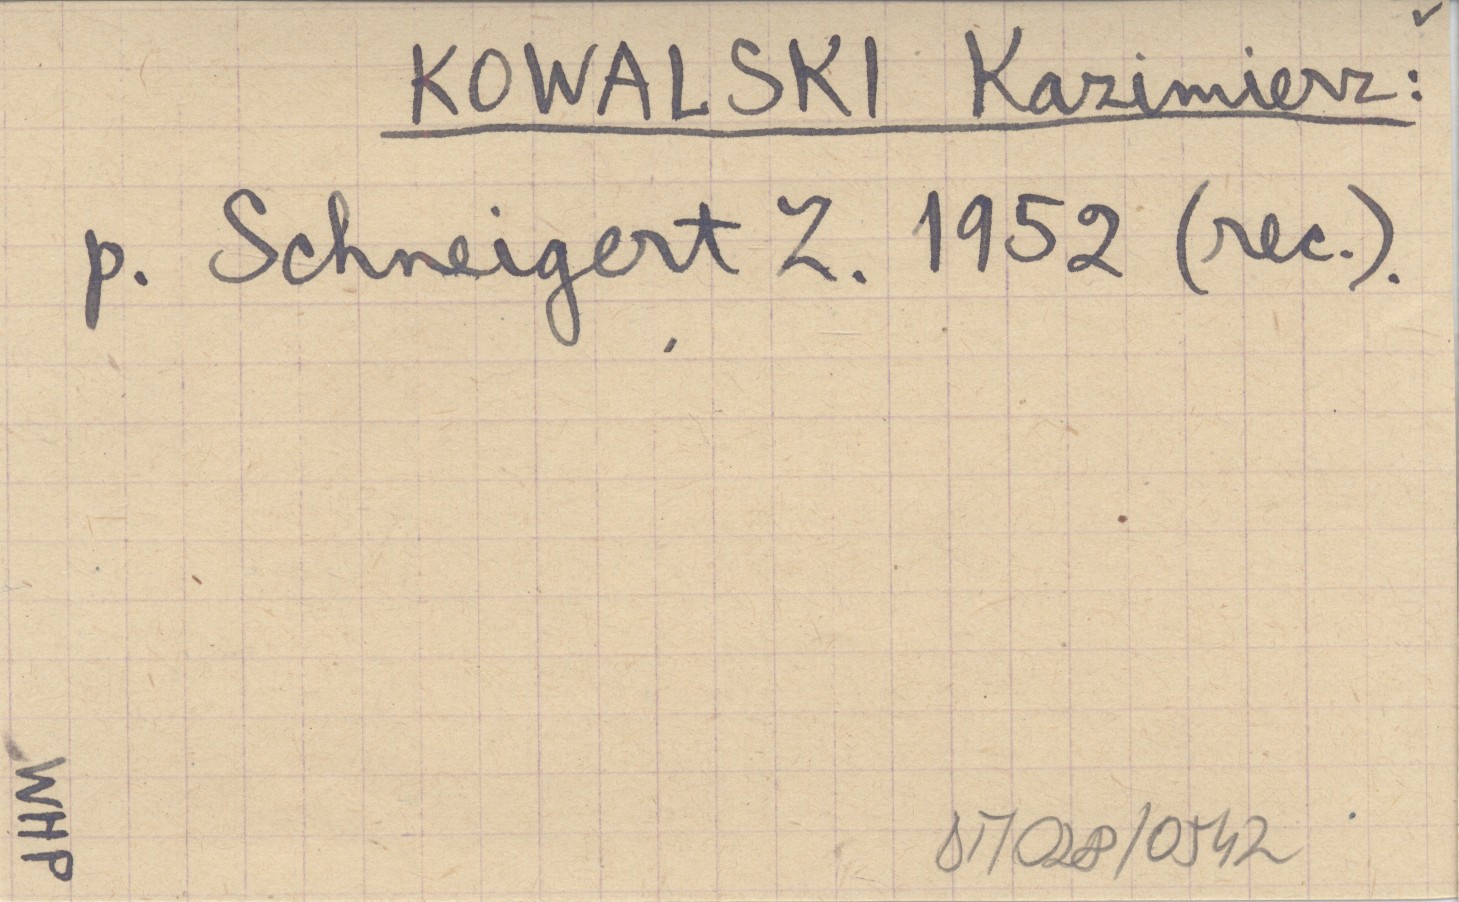 KOWALSKI Kazimierz:
p. Schneigert Z. 1952 (rec.).
WHP
/028/0542